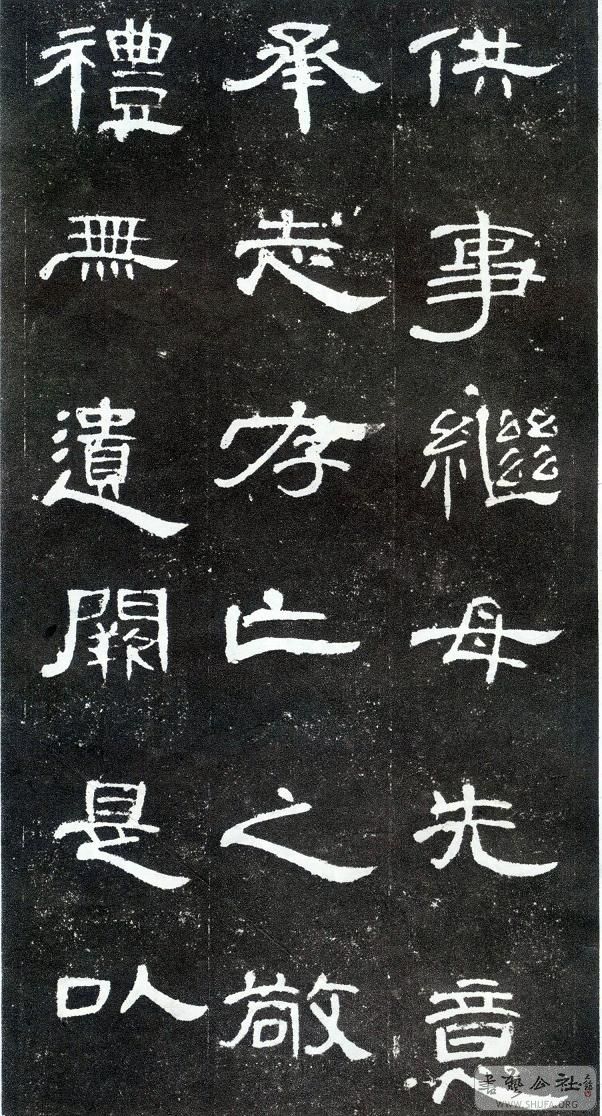 供事繼母先意
承志存亡之敬
禮無遺闕是以
書藝公社
WWW.SHUFA.ORG